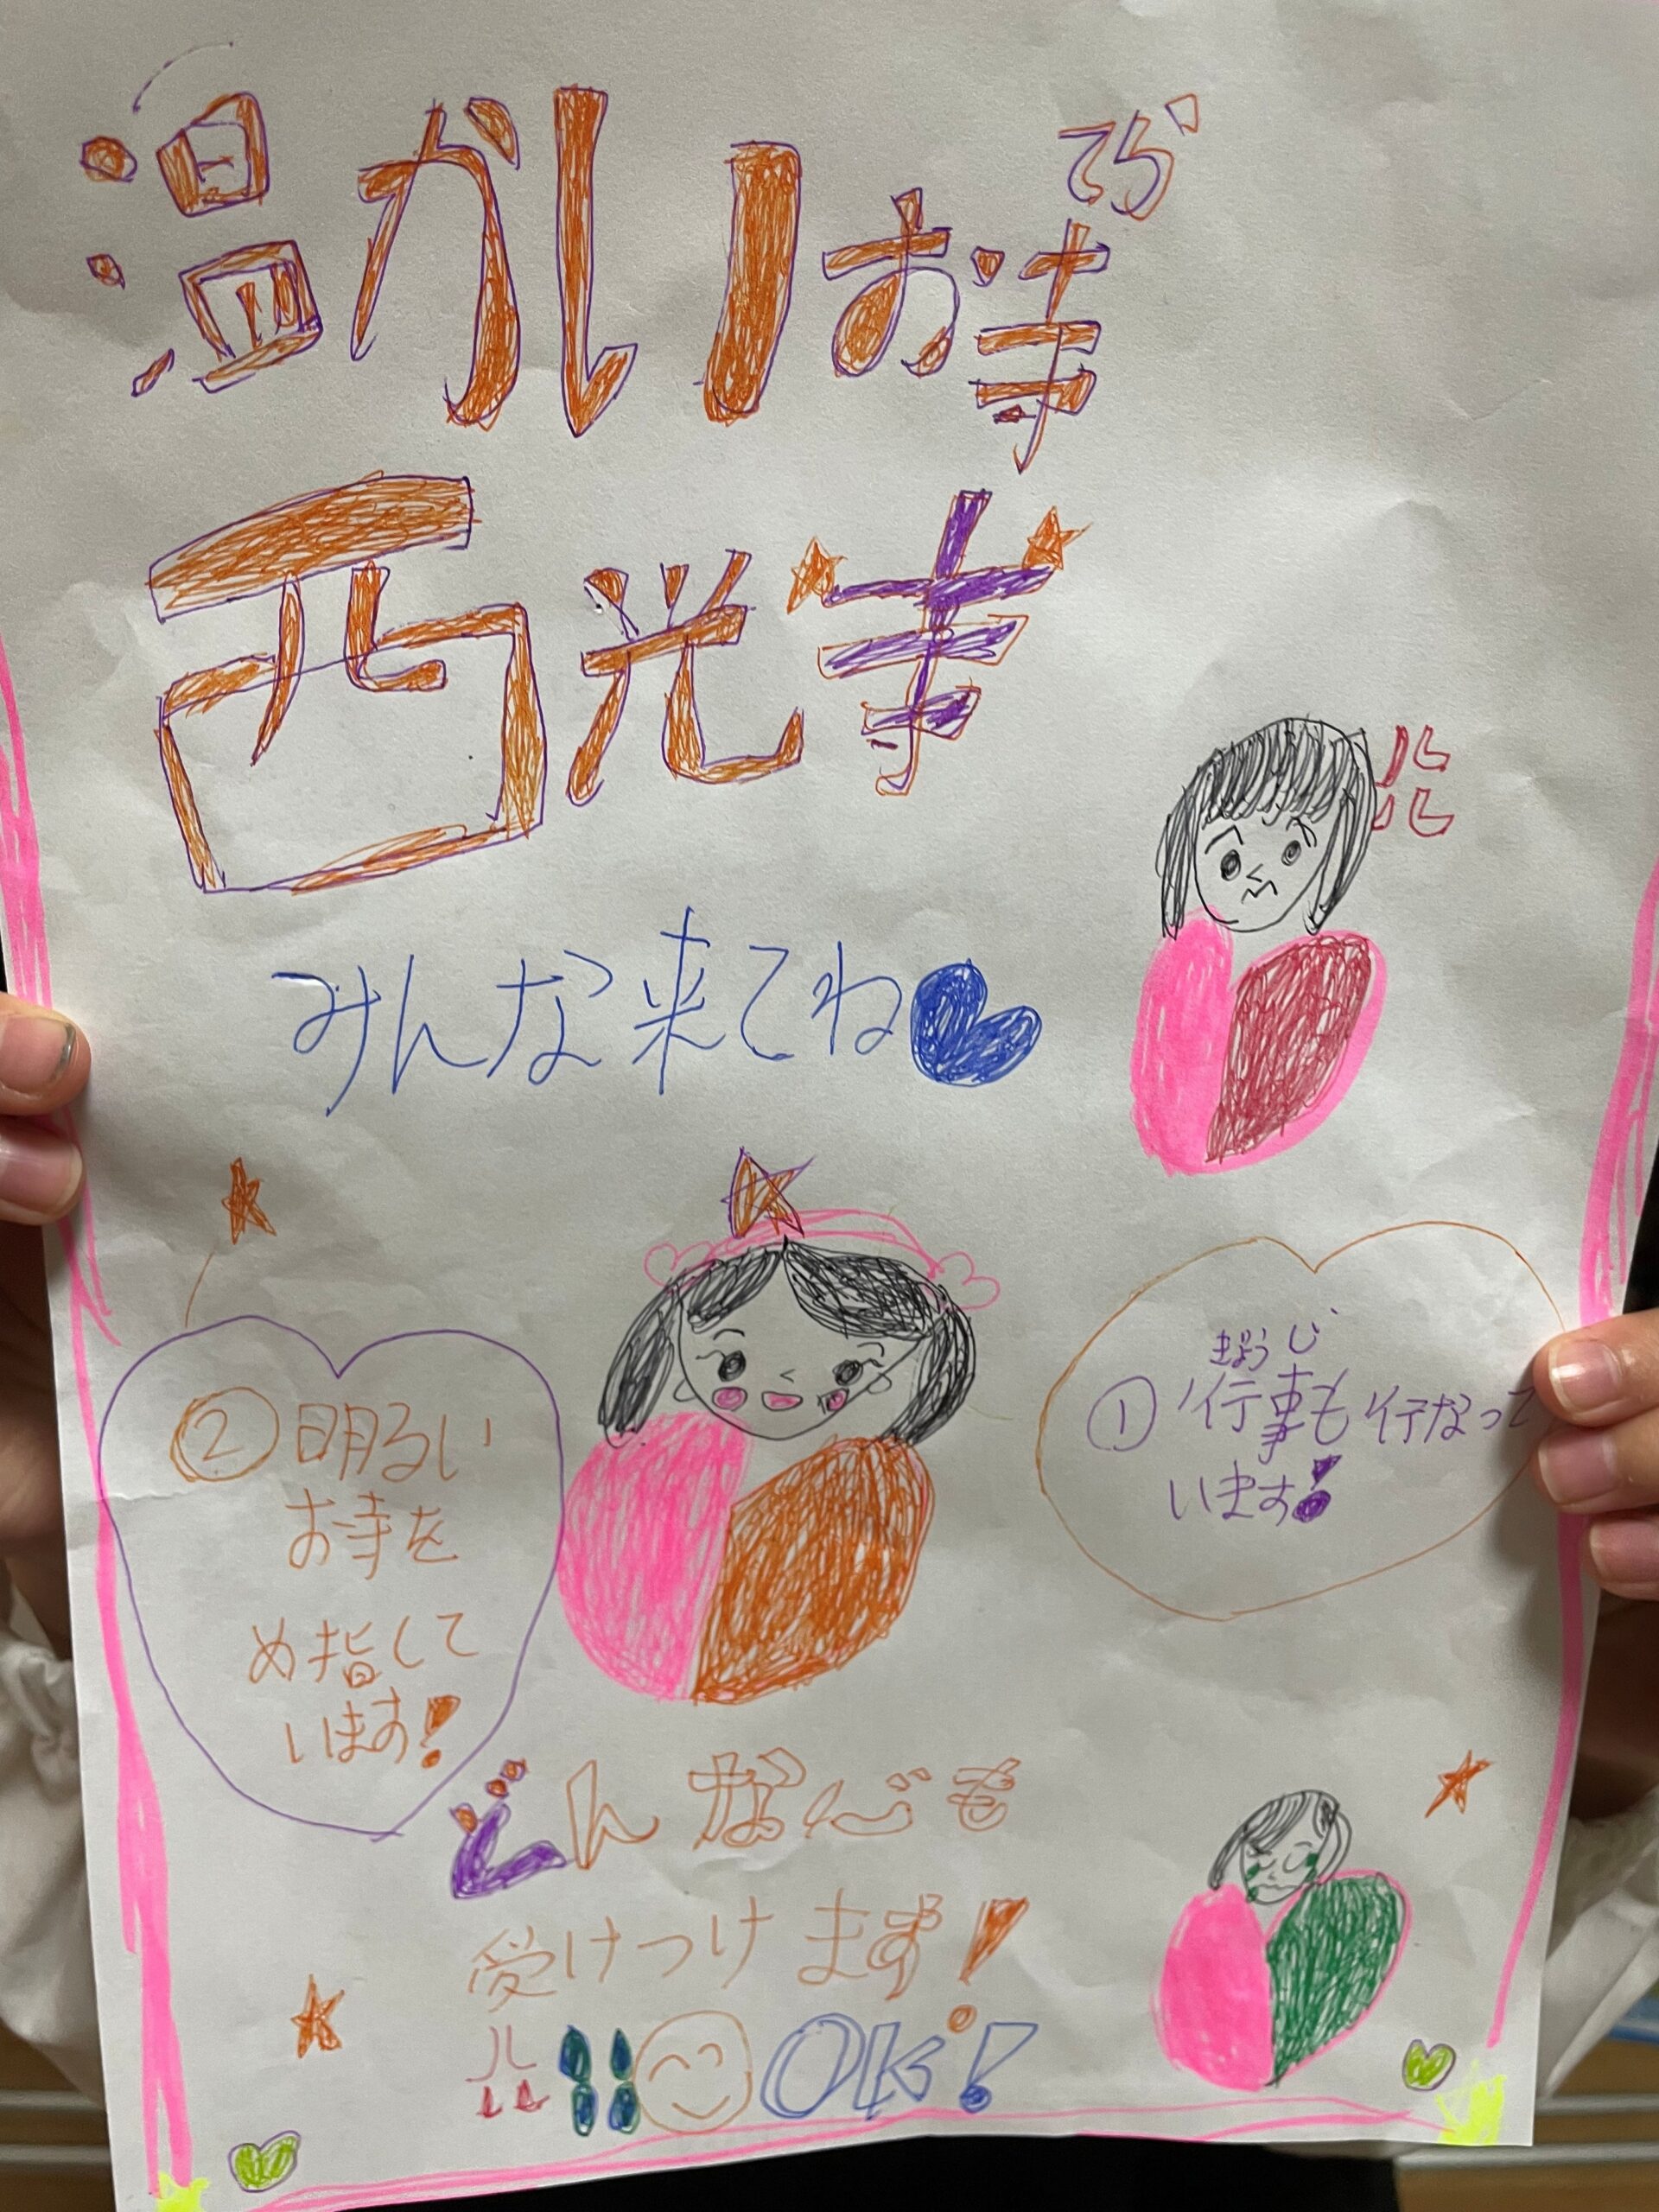 温かいお寺
てら
西光寺
みんな来てね
①行事も行なって
ぎょうじ
います!
②明るい
お寺を
め指して
います!
どんな心も
受けつけます!
OK!